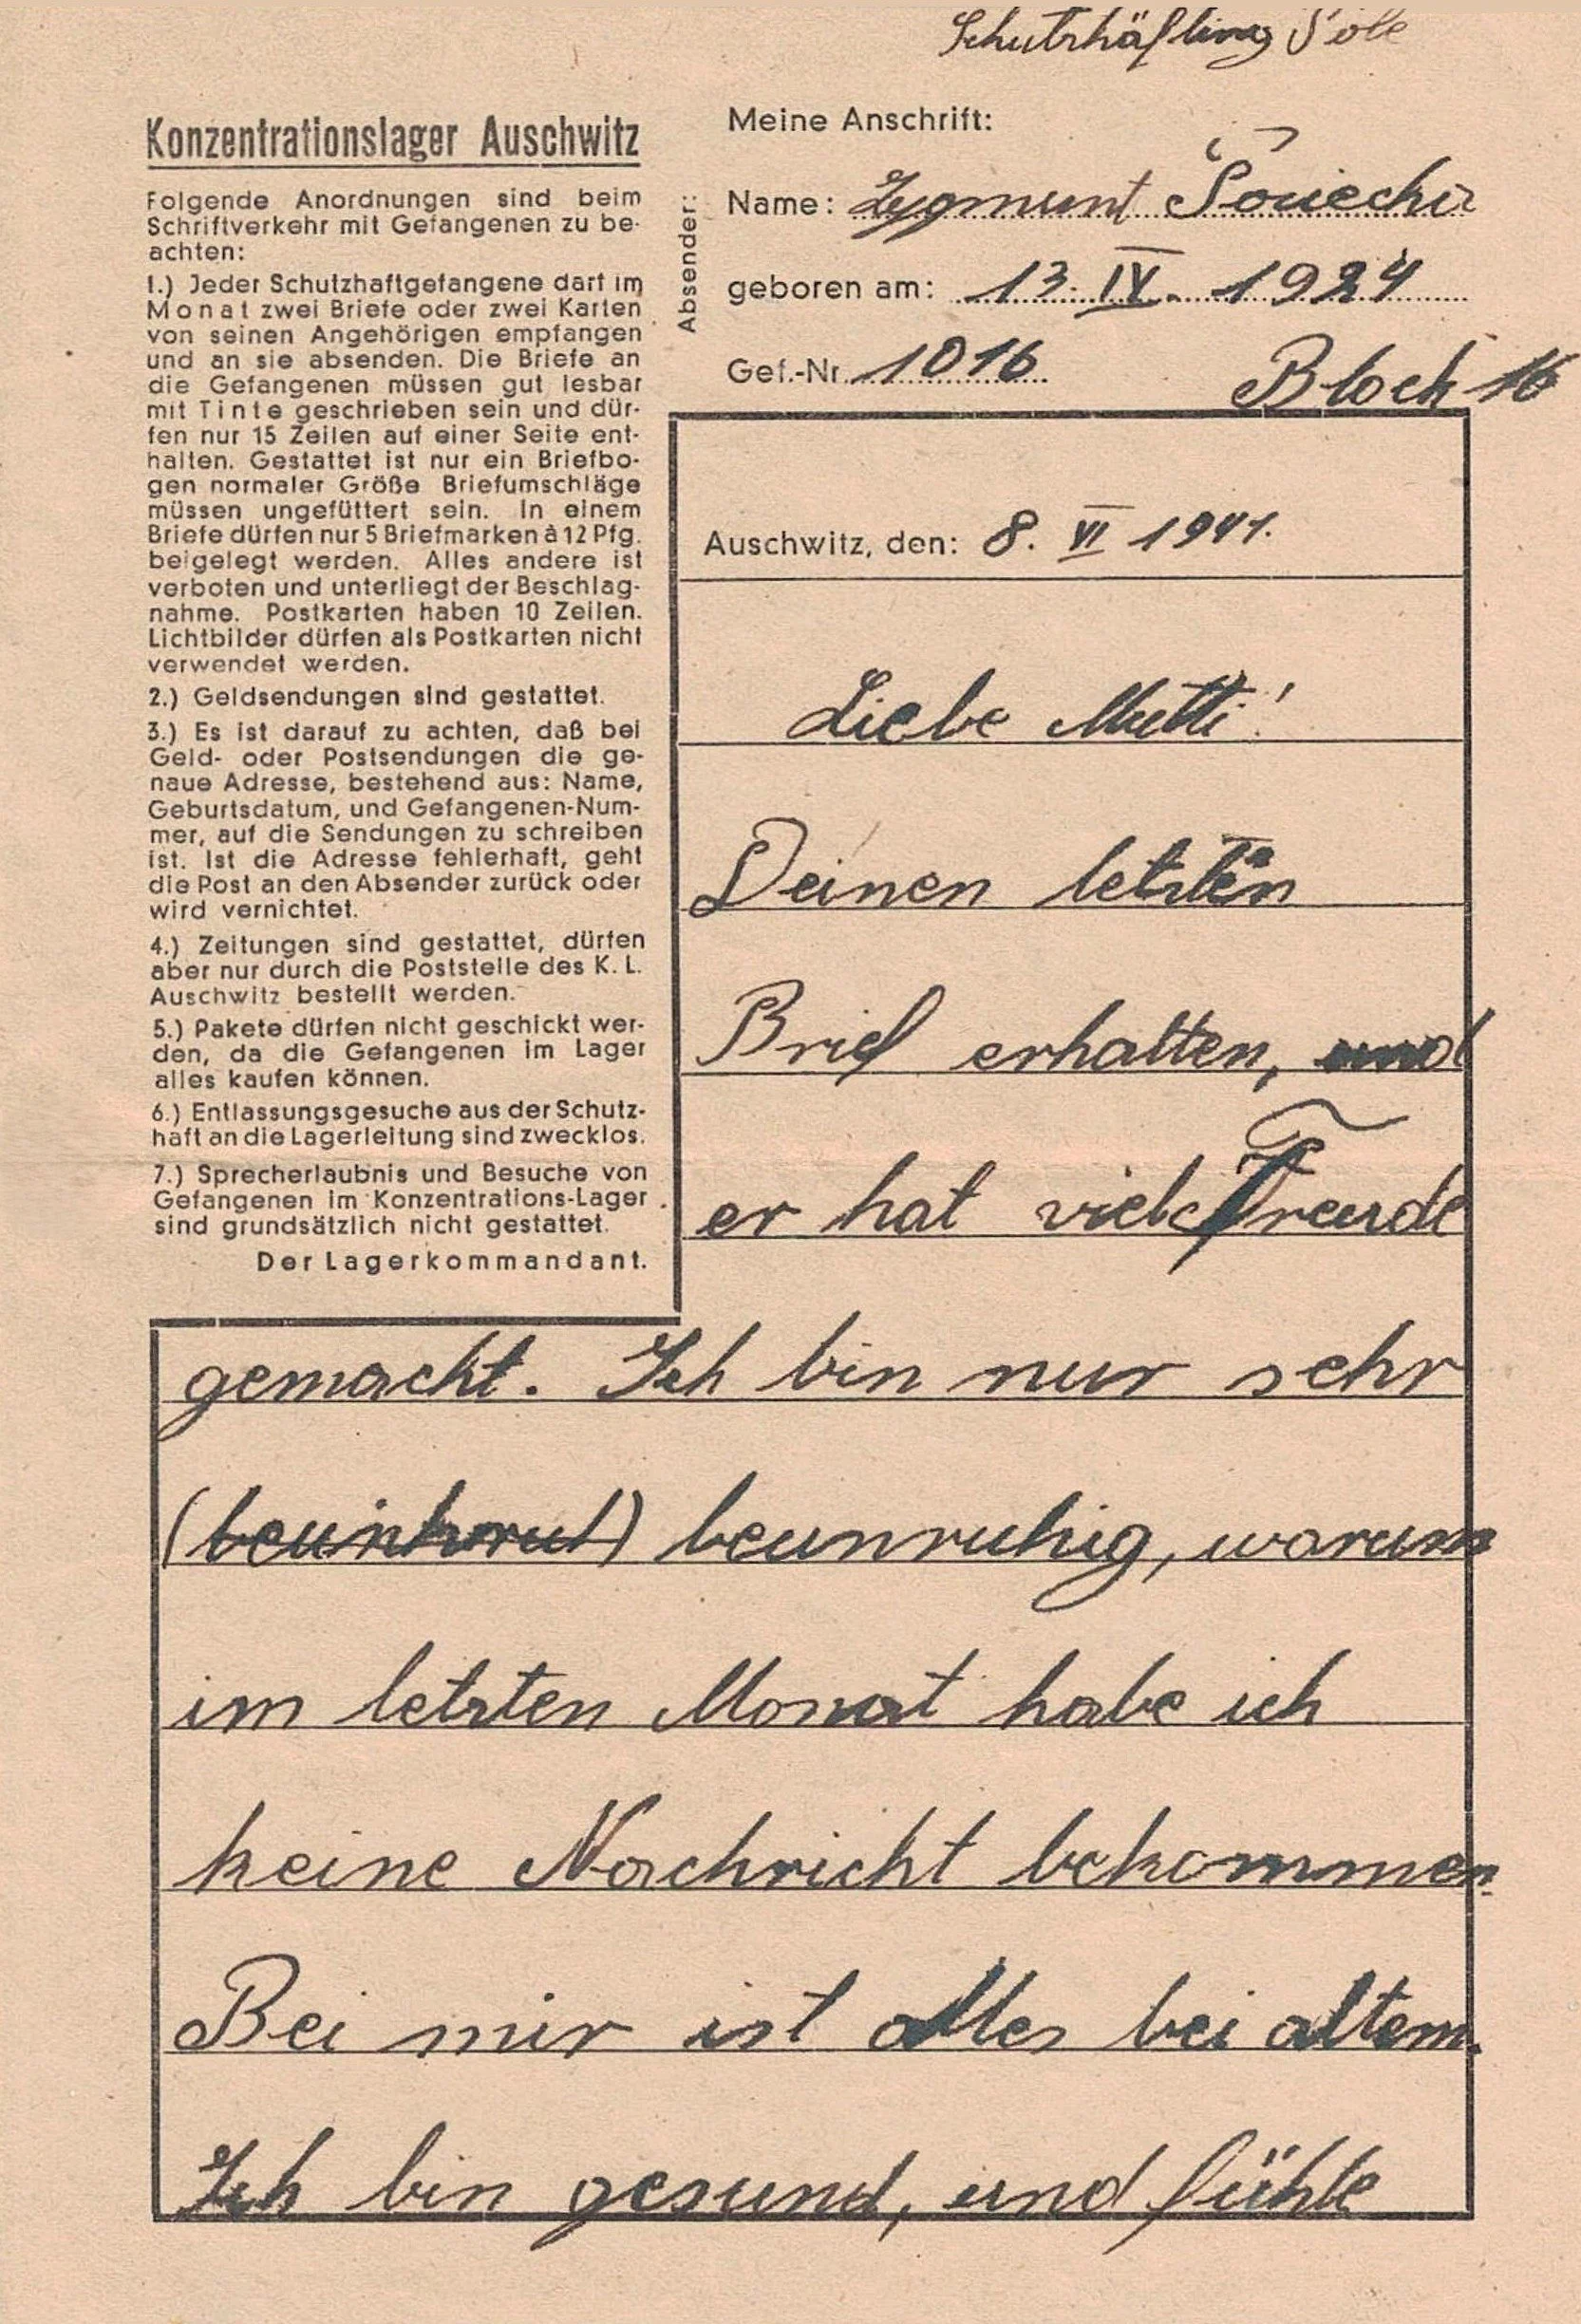 Schutzhäfling Pole
Konzentrationslager Auschwitz
Folgende Anordnungen sind beim
Schriftverkehr mit Gefangenen zu be-
achten:
1.) Jeder Schutzhaftgefangene darf im
Monat zwei Briefe oder zwei Karten
von seinen Angehörigen empfangen
und an sie absenden. Die Briefe an
die Gefangenen müssen gut lesbar
mit Tinte geschrieben sein und dür-
fen nur 15 Zeilen auf einer Seite ent-
halten. Gestattet ist nur ein Briefbo-
gen normaler Größe Briefumschläge
müssen ungefüttert sein. In einem
Briefe dürfen nur 5 Briefmarken à 12 Pfg.
beigelegt werden. Alles andere ist
verboten und unterliegt der Beschlag-
nahme. Postkarten haben 10 Zeilen.
Lichtbilder dürfen als Postkarten nicht
verwendet werden.
2.) Geldsendungen sind gestattet.
3.) Es ist darauf zu achten, daß bei
Geld- oder Postsendungen die ge-
naue Adresse, bestehend aus: Name,
Geburtsdatum, und Gefangenen-Num-
mer, auf die Sendungen zu schreiben
ist. Ist die Adresse fehlerhaft, geht
die Post an den Absender zurück oder
wird vernichtet.
4.) Zeitungen sind gestattet, dürfen
aber nur durch die Poststelle des K. L.
Auschwitz bestellt werden.
5.) Pakete dürfen nicht geschickt wer-
den, da die Gefangenen im Lager
alles kaufen können.
6.) Entlassungsgesuche aus der Schutz-
haft an die Lagerleitung sind zwecklos.
7.) Sprecherlaubnis und Besuche von
Gefangenen im Konzentrations-Lager
sind grundsätzlich nicht gestattet.
Der Lagerkommandant.
Absender:
Meine Anschrift:
Name: Zygmunt
geboren am: 13. IV. 1924
Gef.-Nr. 1016 Block 16
Auschwitz, den: 8. VI 1941.
Liebe Mutti!
Deinen letzten
Brief erhalten, und
er hat viele Freude
gemacht. Ich bin nur sehr
beunruhig, warum
im letzten Monat habe ich
keine Nachricht bekommen.
Bei mir ist alles bei altem.
Ich bin gesund, und fühle